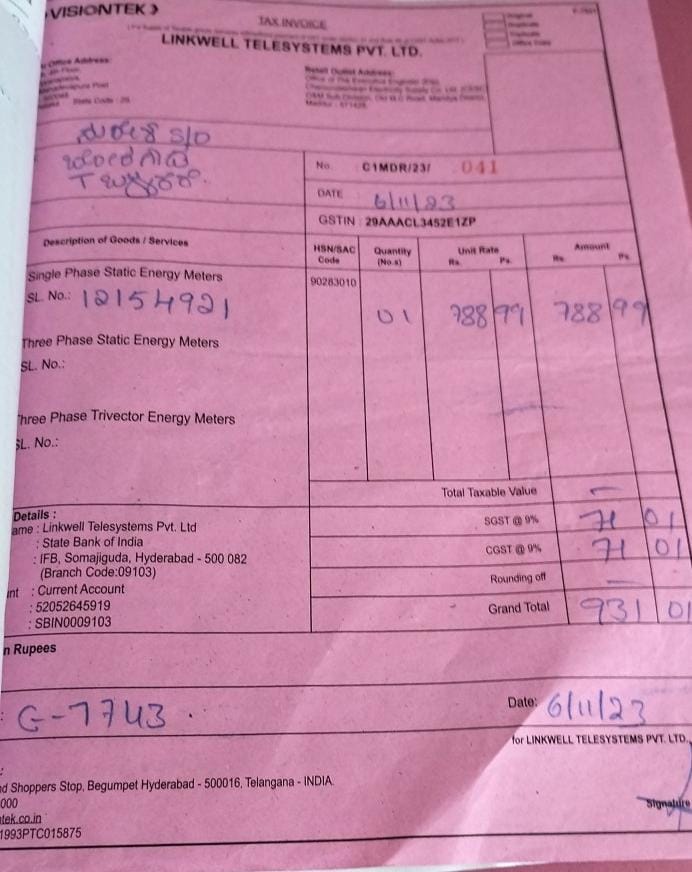 VISIONTEK
TAX INVOICE
LINKWELL TELESYSTEMS PVT. LTD.
Office Address:
Retail Outlet Address:
State Code : 29
S/O
No. C1MDR/23/ 041
DATE 6/11/23
GSTIN : 29AAACL3452E1ZP
Description of Goods / Services
HSN/SAC Code
Quantity (No.s)
Unit Rate Rs. Ps.
Amount Rs. Ps.
Single Phase Static Energy Meters 90283010
SL. No.: 12154921 01 788 99 788 99
Three Phase Static Energy Meters
SL. No.:
hree Phase Trivector Energy Meters
SL. No.:
Total Taxable Value —
Details :
ame : Linkwell Telesystems Pvt. Ltd
SGST @ 9% 71 01
: State Bank of India
: IFB, Somajiguda, Hyderabad - 500 082
CGST @ 9% 71 01
(Branch Code:09103)
Rounding off —
nt : Current Account
: 52052645919
Grand Total 931 01
: SBIN0009103
n Rupees
: G-7743 .
Date: 6/11/23
for LINKWELL TELESYSTEMS PVT. LTD.,
:
d Shoppers Stop, Begumpet Hyderabad - 500016, Telangana - INDIA.
000
tek.co.in
1993PTC015875
Signature